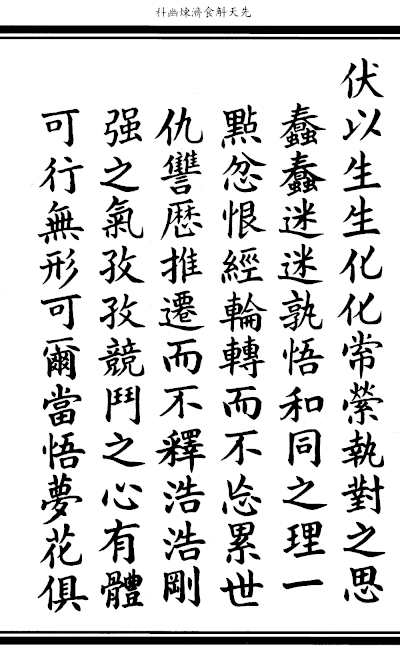 先天斛食濟煉幽科
伏以生生化化常縈執對之思
蠢蠢迷迷孰悟和同之理一
點忿恨經輪轉而不忘累世
仇讐歷推遷而不釋浩浩剛
强之氣孜孜競鬥之心有體
可行無形可爾當悟夢花俱